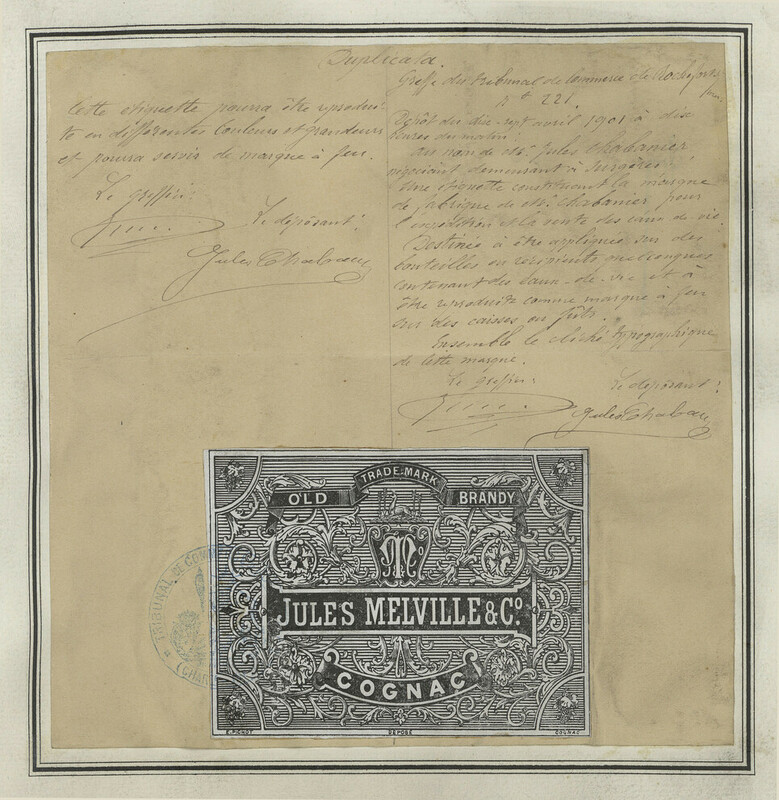 Duplicata.
Cette étiquette pourra être reprodui-
te en différentes couleurs et grandeurs
et pourra servir de marque à feu.
Le greffier:
Le déposant:
Jules Chabanier
Greffe du tribunal de Commerce de Rochefort s/mer.
Nº 221.
Dépôt du dix-sept avril 1901 à dix
heures du matin:
Au nom de M. Jules Chabanier
négociant demeurant à Surgères
Une étiquette constituant la marque
de fabrique de M. Chabanier pour
l'expédition et la vente des eaux-de-vie.
Destinée à être appliquée sur des
bouteilles ou récipients quelconques
contenant des eaux-de-vie et à
être reproduite comme marque à feu
sur des caisses ou fûts.
Ensemble le cliché typographique
de cette marque.
Le greffier:
Le déposant:
Jules Chabanier
TRADE-MARK
OLD
BRANDY
JULES MELVILLE & Cº
COGNAC
E. PICHOT
DÉPOSÉ
COGNAC
TRIBUNAL DE COMM
(CHAR